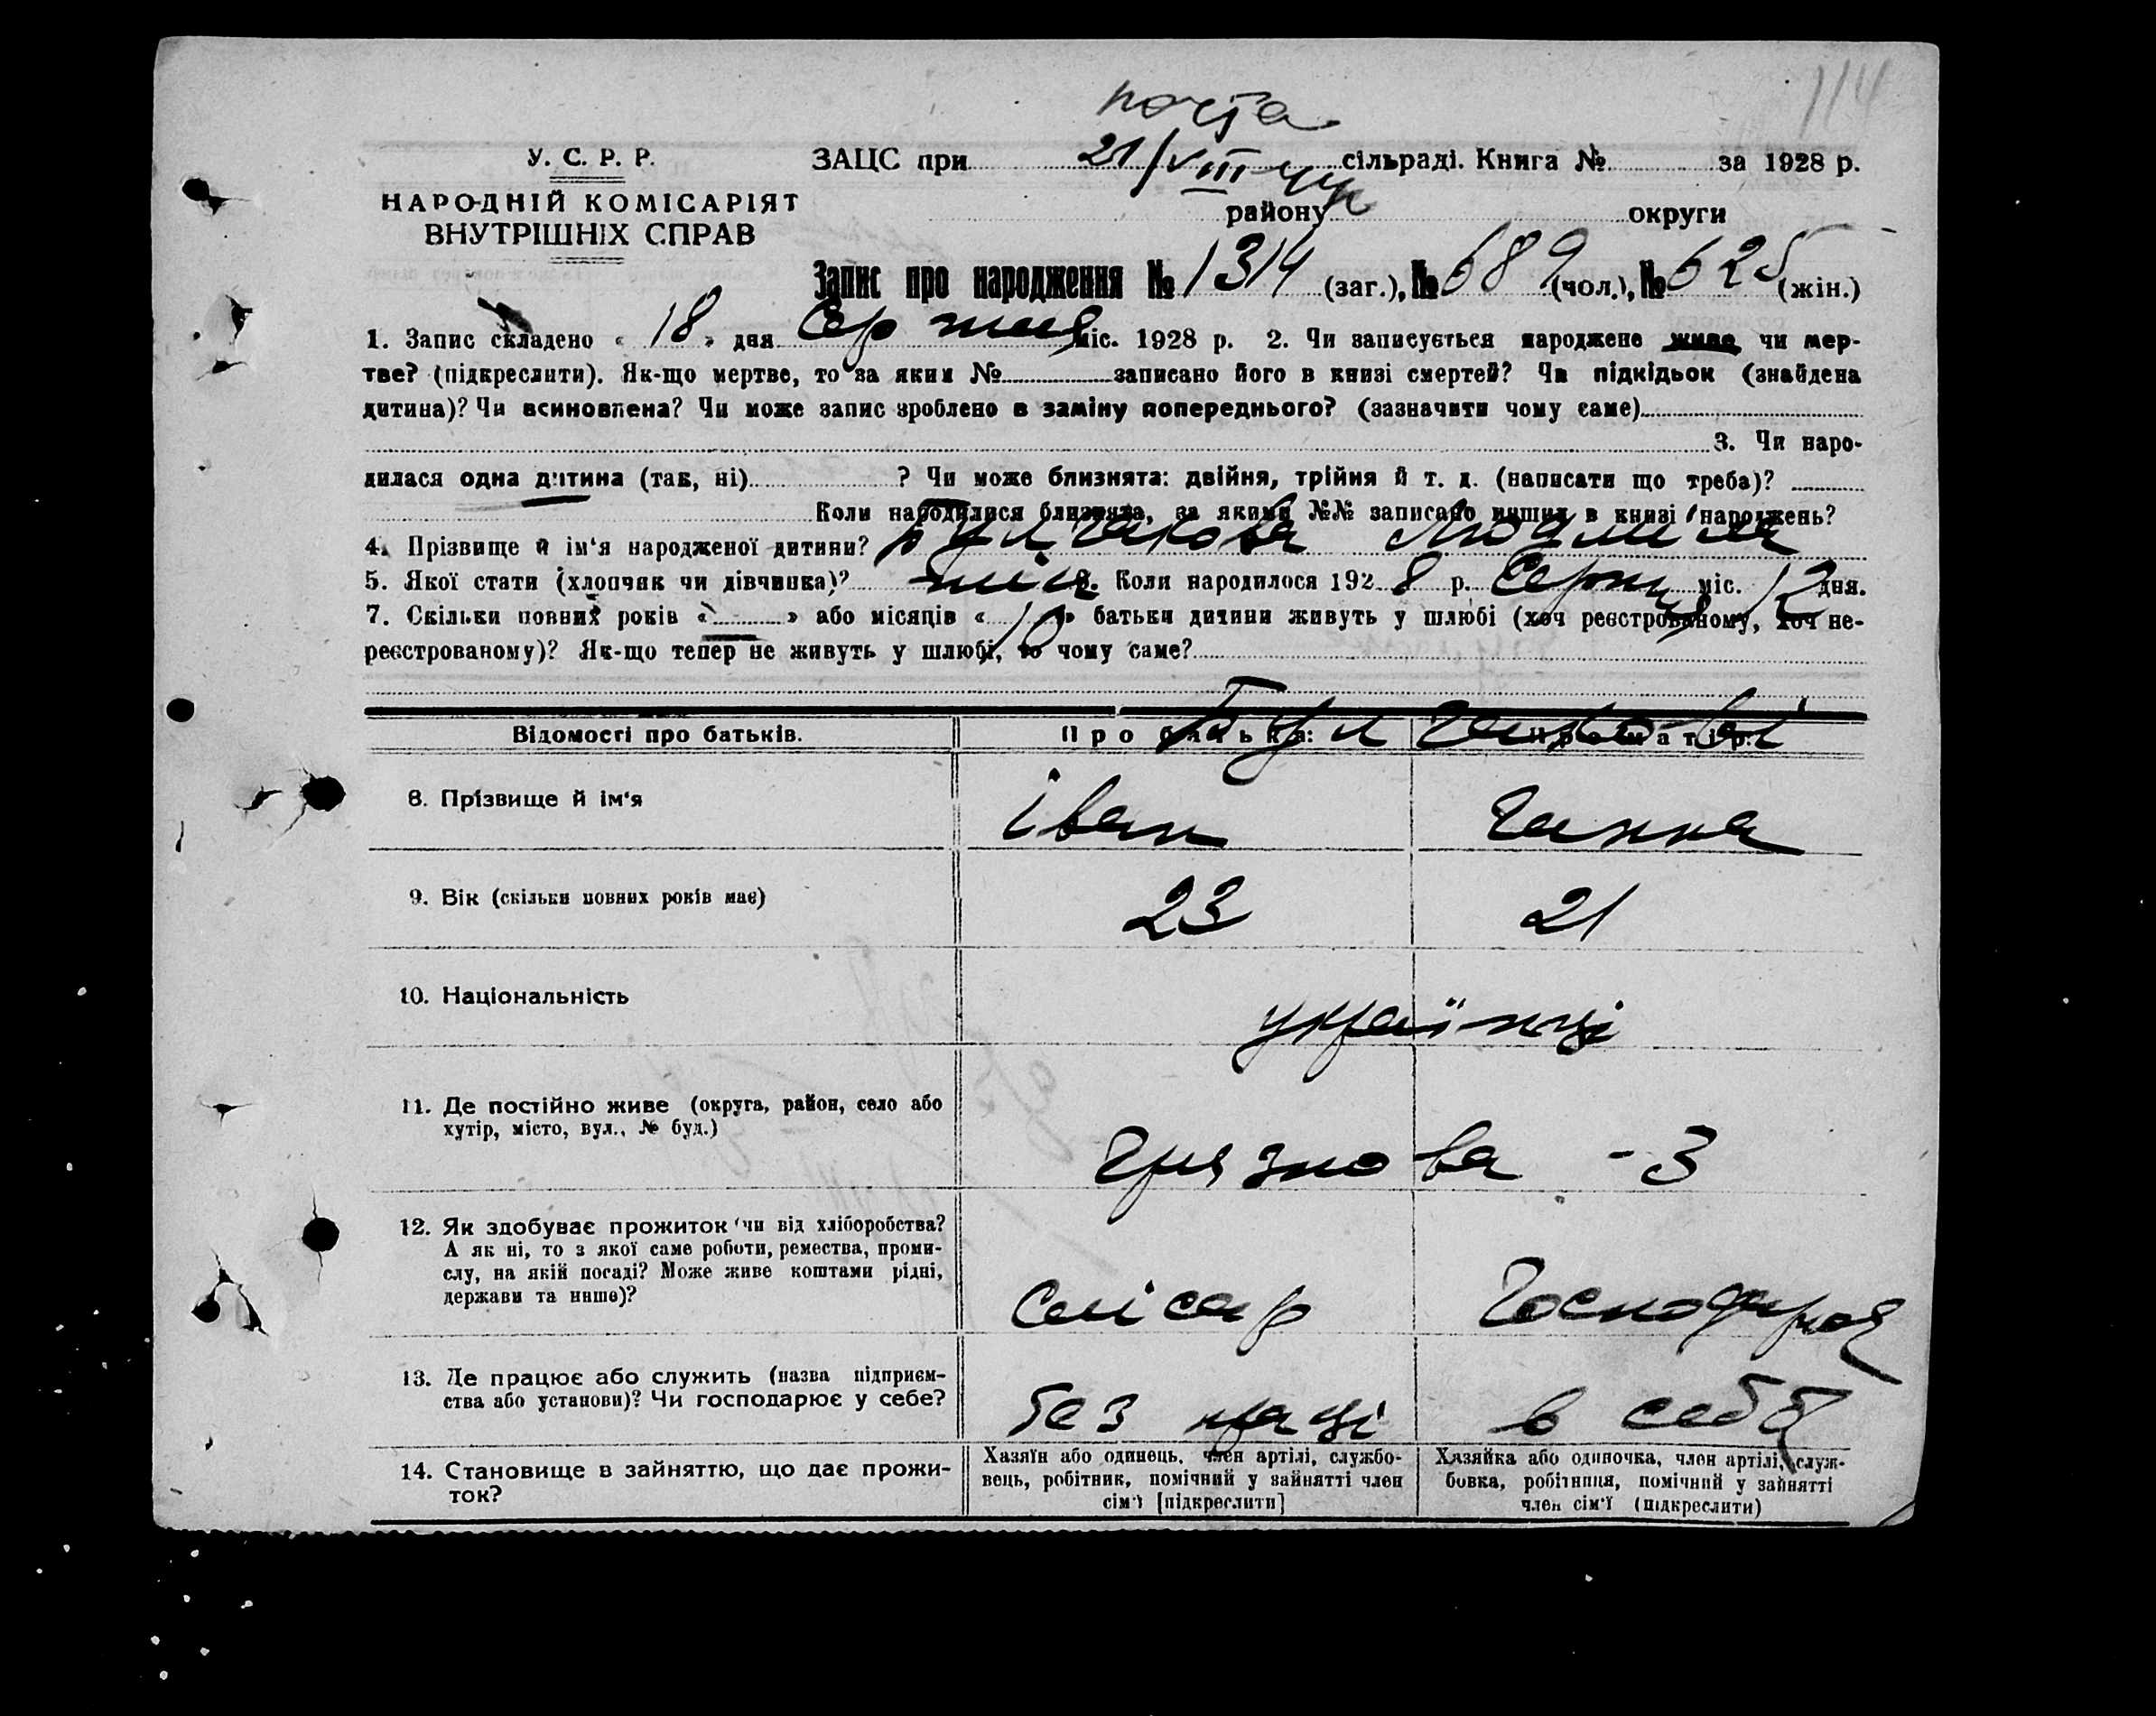 114
почта
У. С. Р. Р.
ЗАЦС при 21/VIII сільраді. Книга № за 1928 р.
НАРОДНІЙ КОМІСАРІЯТ
ВНУТРІШНІХ СПРАВ
району округи
Запис про народження № 1314 (заг.), № 689 (чол.), № 625 (жін.)
1. Запис складено « 18 » дня Серпня міс. 1928 р. 2. Чи записується народжене живе чи мер-
тве? (підкреслити). Як-що мертве, то за яким № записано його в книзі смертей? Чи підкідьок (знайдена
дитина)? Чи всиновлена? Чи може запис зроблено в заміну попереднього? (зазначити чому саме)
3. Чи наро-
дилася одна дитина (так, ні) ? Чи може близнята: двійня, трійня й т. д. (написати що треба)?
Коли народилися близнята, за якими №№ записано инших в книзі народжень?
4. Прізвище й ім'я народженої дитини? Булгакова Людмила
5. Якої стати (хлопчик чи дівчинка)? жін 6. Коли народилося 1928 р. Серпня міс. 12 дня.
7. Скільки повних років « — » або місяців « 10 » батьки дитини живуть у шлюбі (хоч реєстрованому, хоч не-
реєстрованому)? Як-що тепер не живуть у шлюбі, то чому саме?
Відомості про батьків. Про батька: Про матір:
Булгакови
8. Прізвище й ім'я Іван Ганна
9. Вік (скільки повних років має) 23 21
10. Національність українці
11. Де постійно живе (округа, район, село або
хутір, місто, вул., № буд.)
Грязнова - 3
12. Як здобуває прожиток (чи від хліборобства?
А як ні, то з якої саме роботи, ремества, проми-
слу, на якій посаді? Може живе коштами рідні,
держави та инше)?
Слісар Господарює
13. Де працює або служить (назва підприєм-
ства або установи)? Чи господарює у себе?
без праці в себе
14. Становище в зайняттю, що дає прожи-
ток?
Хазяїн або одинець, член артілі, службо-
вець, робітник, помічний у зайнятті член
сім'ї [підкреслити]
Хазяйка або одиночка, член артілі, служ-
бовка, робітниця, помічний у зайнятті
член сім'ї (підкреслити)